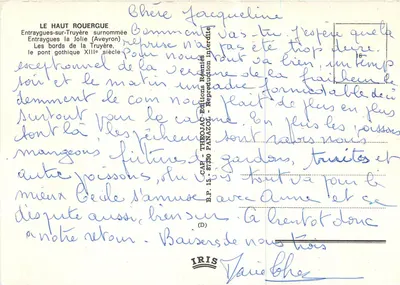 Chère Jacqueline
LE HAUT ROUERGUE
Entraygues-sur-Truyère surnommée
Entraygues la Jolie (Aveyron)
Les bords de la Truyère,
le pont gothique XIIIe siècle
Comment vas-tu j'espère que la
reprise n'a pas été trop dure.
Pour nous tout va bien, un temps
exceptionnel de la verdure de la fraîcheur le
soir et le matin un cadre formidable déci
demment le coin nous plaît de plus en plus
surtout pour le calme. En plus les poissons
sont là les pêcheurs sont ravis nous
mangeons fritures de gardons, truites et
autre poissons, tout va pour le
mieux Cécile s'amuse avec Anne et se
dispute aussi, bien sur. A bientot donc
a notre retour. Baisers de nous trois
CAP - THEOJAC Editions Réservés
B.P. 15 - 87350 PANAZOL - Reproduction interdite
18
(D)
IRIS